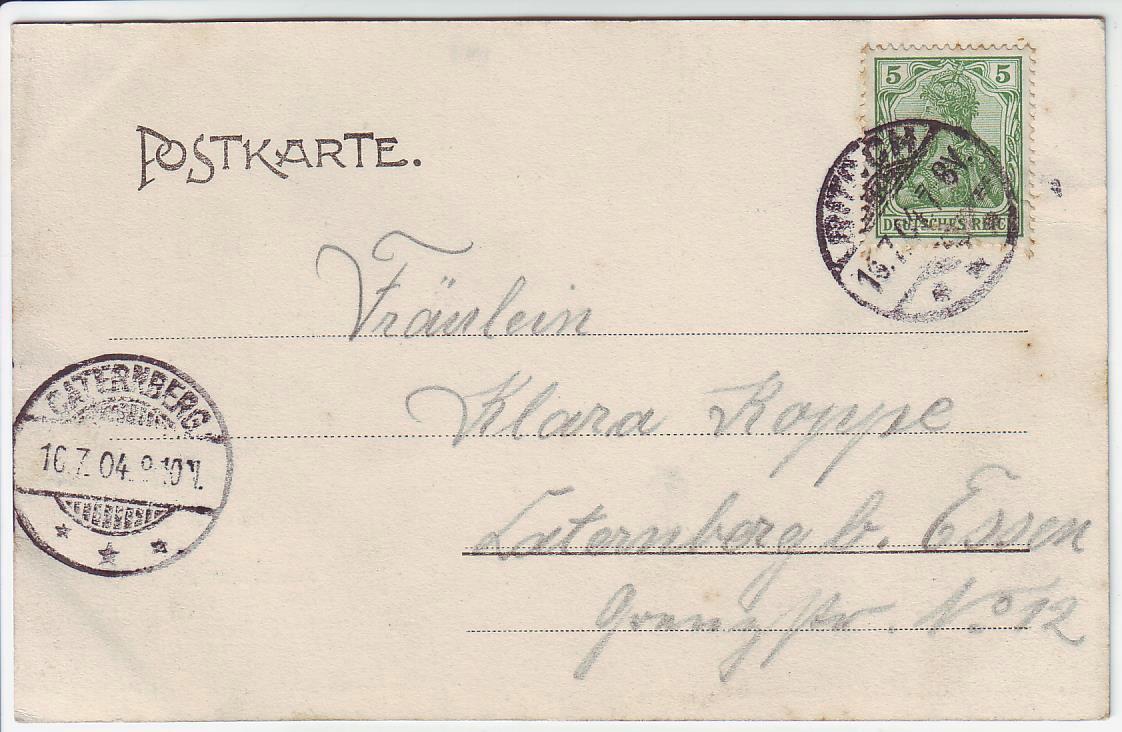 POSTKARTE.
5 5
DEUTSCHES REICH
16.7.04. 7-8V.
Fräulein
Klara Koppe
CATERNBERG
16.7.04. 9-10V.
Caternberg b. Essen
Grenzstr. No 12